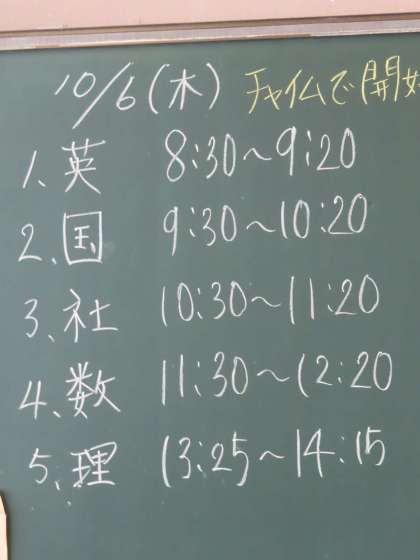 10/6(木) チャイムで開始
1、英 8:30～9:20
2、国 9:30～10:20
3、社 10:30～11:20
4、数 11:30～12:20
5、理 13:25～14:15